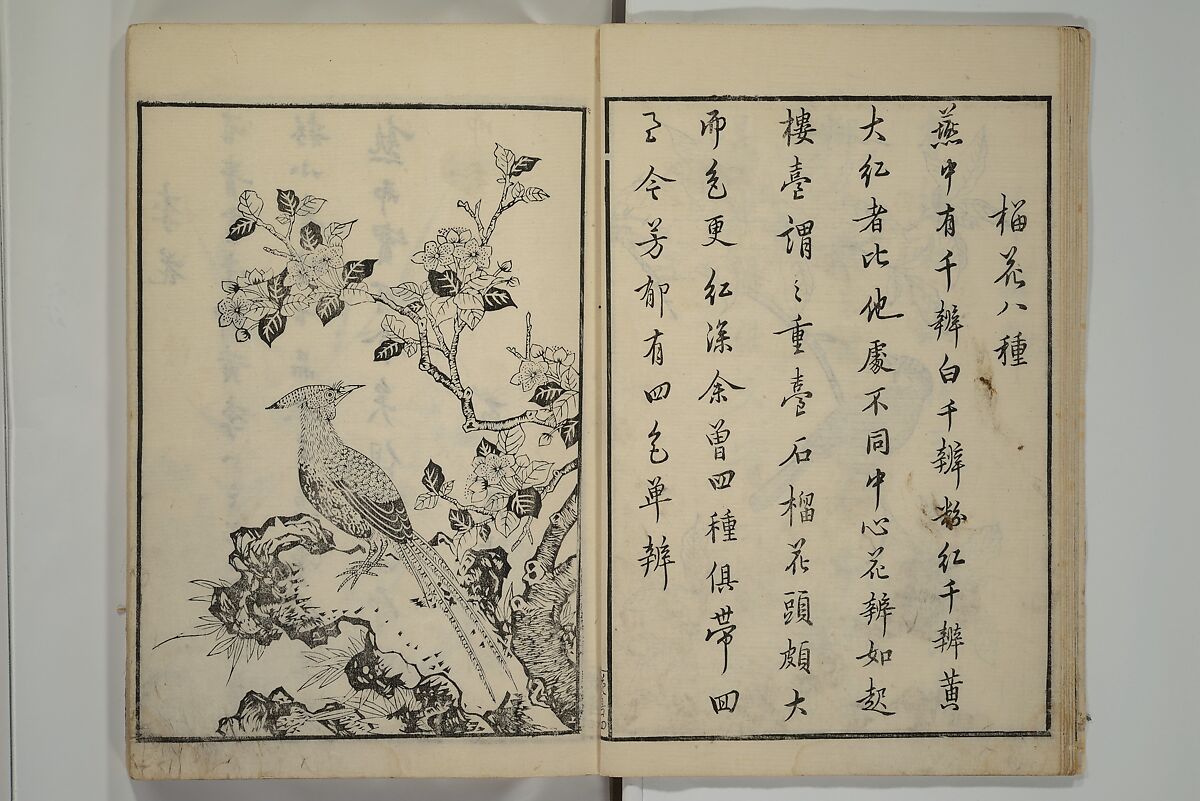 榴花八種
燕中有千辨白千辨粉紅千辨黄
大紅者比他處不同中心花辨如起
樓臺謂之重臺石榴花頭頗大
而色更紅深余曾四種俱帶回
至今芳郁有四色单辨